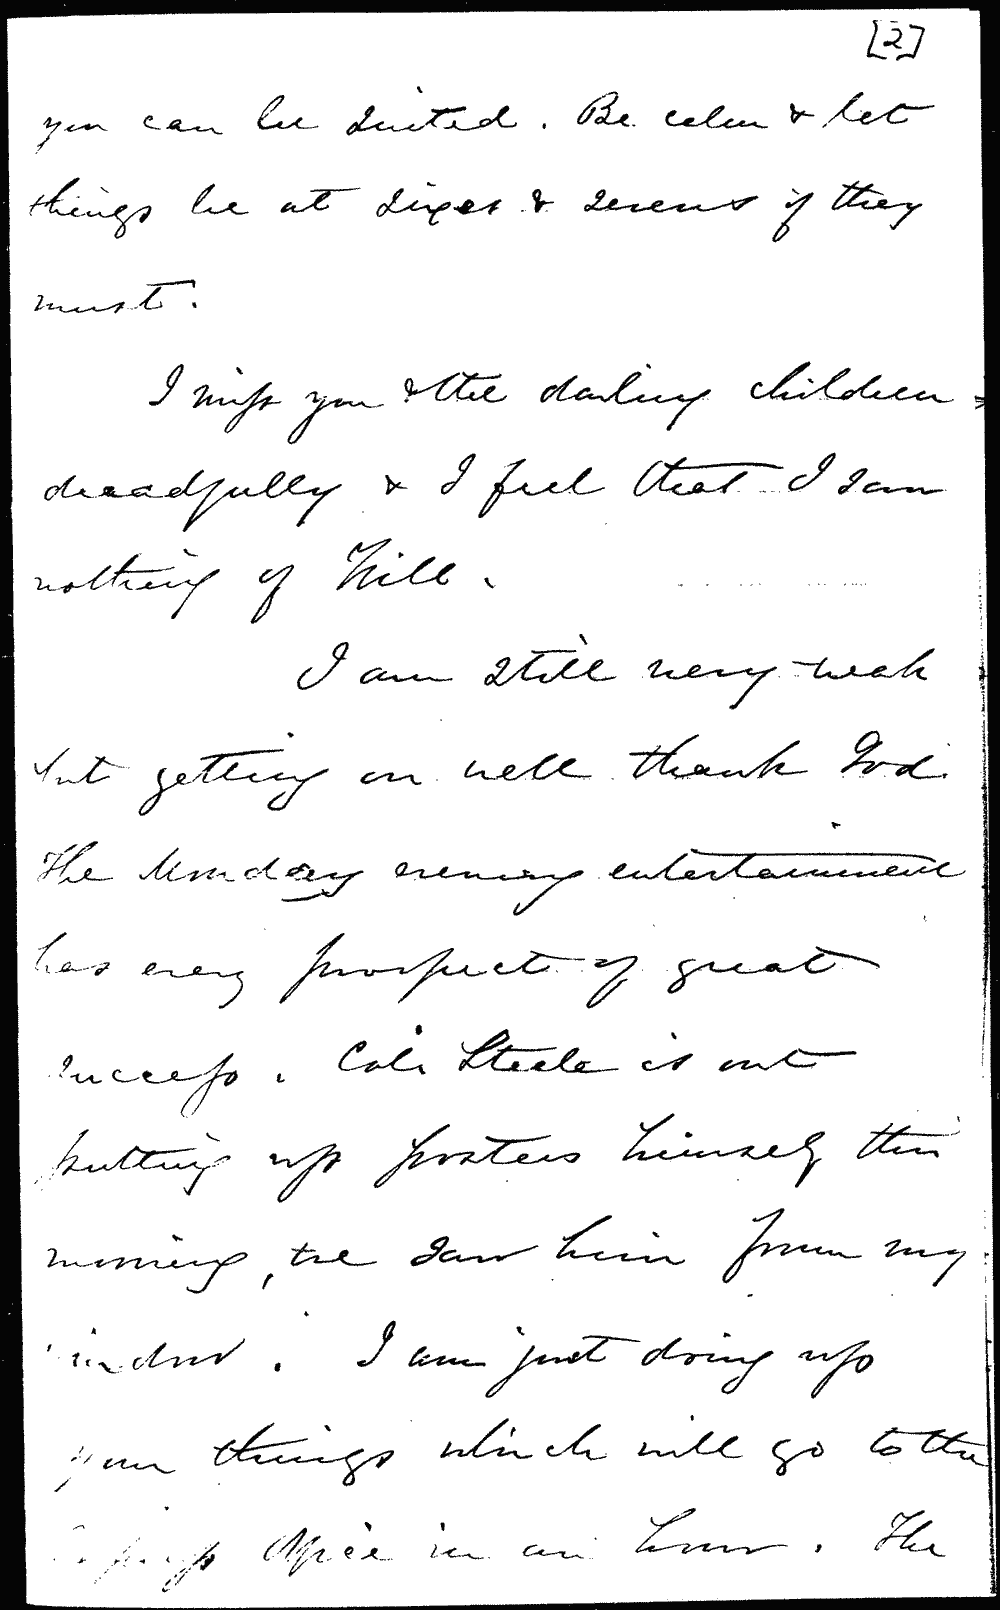 [2]
you can be suited. Be calm & let
things be at sixes & sevens if they
must.
I miss you & the darling children
dreadfully & I feel that I saw
nothing of Will.
I am still very weak
but getting on well thank God.
The Monday evening entertainment
has every prospect of great
success. Col. Steele is out
putting up posters himself this
morning, we saw him from my
window. I am just doing up
your things which will go to the
Express Office in an hour. The